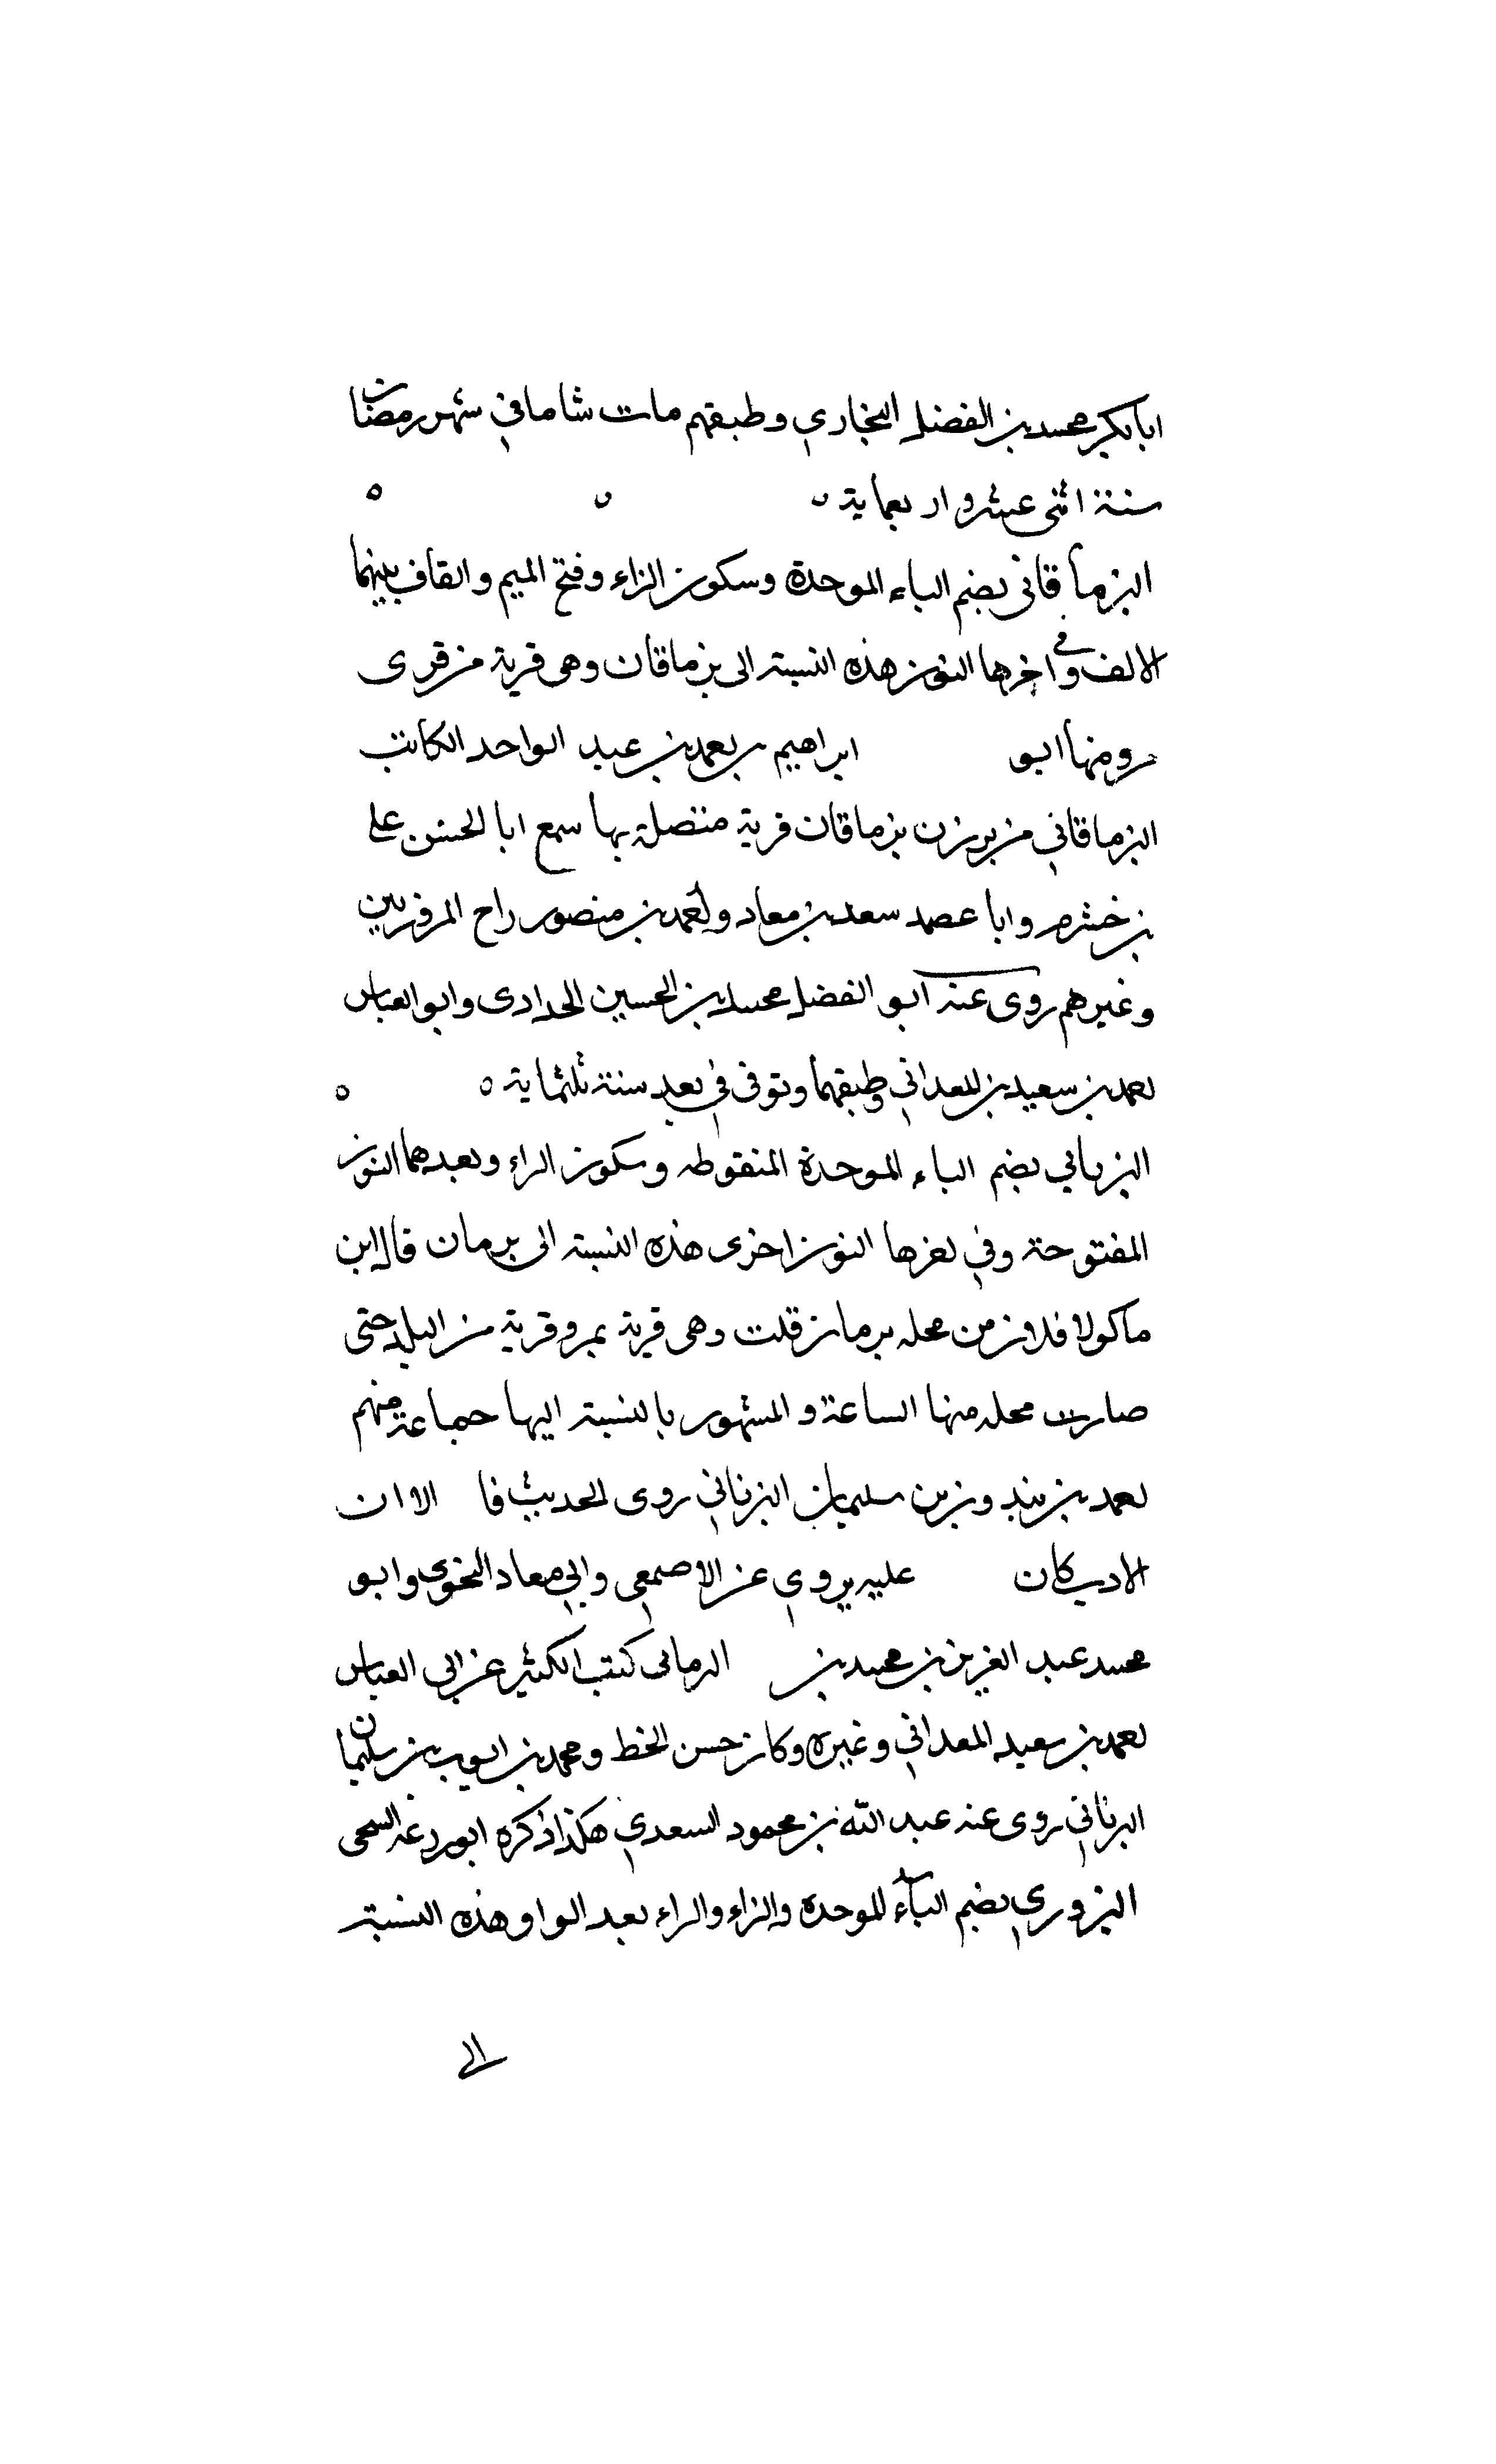 ابا بكر محمد بن الفضل البخاري وطبقتهم مات شابا في شهر رمضان
سنة اثنى عشر واربعماية ه ه ه
البزماقانى بضم الباء الموحدة وسكون الزاء وفتح الميم والقاف بينهما
الالف وفي اخرها النون هذه النسبة الى بزماقان وهى قرية من قرى
مرو منها ابو ابراهيم بن احمد بن عبد الواحد الكاتب
البزماقاني من بزماقان قرية متصلة بها سمع ابا الحسن على
بن خشرم وابا عصمه سعد بن معاد واحمد بن منصور راح المروزيين
وغيرهم روى عنه ابو الفضل محمد بن الحسين الحدادى وابو العباس
احمد بن سعيد بن المعداني وطبقتهما وتوفى في بعد سنة ثلثماية ه ه
البزناني بضم الباء الموحدة المنقوطه وسكون الزاء وبعدهما النون
المفتوحة وفي اخرها النون اخرى هذه النسبة الى برمان قال ابن
ماكولا فلان من محله برمان قلت وهى قرية بمرو قرية من البلد حتى
صارت محله منها الساعة والمشهور بالنسبة اليها جماعة منهم
احمد بن بندون بن سليمان البزناني روى الحديث فا الا ان
الادب كان عليه يروي عن الاصمعي وابي معاد النحوي وابو
محمد عبد العزيز بن محمد بن الرمانى كتب الكثير عن ابى العباس
احمد بن سعيد المعداني وغيره وكان حسن الخط ومحمد بن ايوب بن سليمان
البرناني روى عنه عبد الله بن محمود السعدي هكذا ذكره ابو زرعه السحى
البزوري بضم الباء الموحدة والزاء والراء بعد الواو هذه النسبة
الى